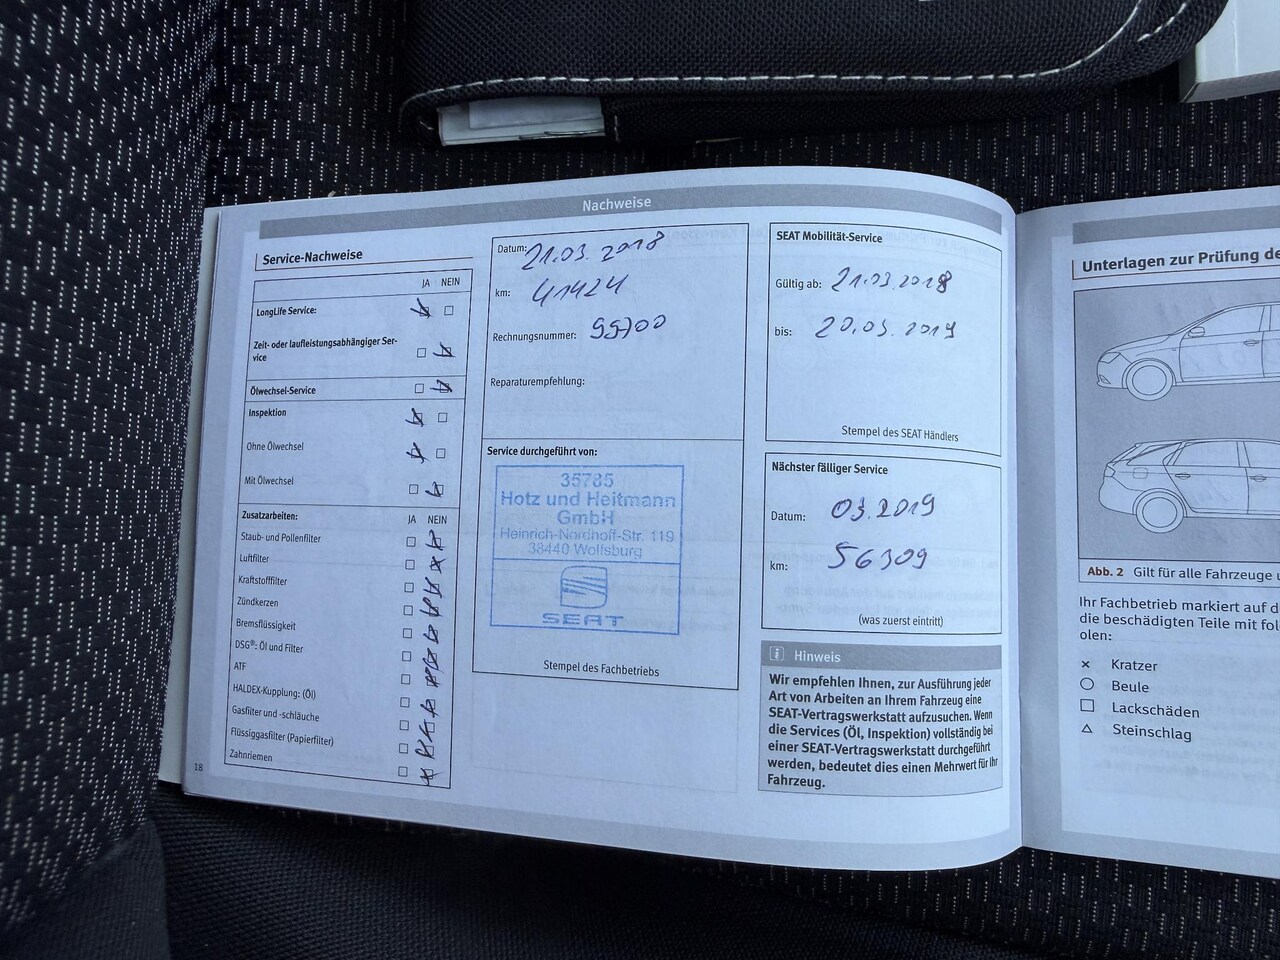 Nachweise
Service-Nachweise
JA NEIN
LongLife Service:
Zeit- oder laufleistungsabhängiger Ser-
vice
Ölwechsel-Service
Inspektion
Ohne Ölwechsel
Mit Ölwechsel
Zusatzarbeiten: JA NEIN
Staub- und Pollenfilter
Luftfilter
Kraftstofffilter
Zündkerzen
Bremsflüssigkeit
DSG®: Öl und Filter
ATF
HALDEX-Kupplung: (Öl)
Gasfilter und -schläuche
Flüssiggasfilter (Papierfilter)
Zahnriemen
18
Datum: 21.03.2018
km: 41424
Rechnungsnummer: 99700
Reparaturempfehlung:
Service durchgeführt von:
35785
Hotz und Heitmann
GmbH
Heinrich-Nordhoff-Str. 119
38440 Wolfsburg
SEAT
Stempel des Fachbetriebs
SEAT Mobilität-Service
Gültig ab: 21.03.2018
bis: 20.03.2019
Stempel des SEAT Händlers
Nächster fälliger Service
Datum: 03.2019
km: 56309
(was zuerst eintritt)
i Hinweis
Wir empfehlen Ihnen, zur Ausführung jeder
Art von Arbeiten an Ihrem Fahrzeug eine
SEAT-Vertragswerkstatt aufzusuchen. Wenn
die Services (Öl, Inspektion) vollständig bei
einer SEAT-Vertragswerkstatt durchgeführt
werden, bedeutet dies einen Mehrwert für Ihr
Fahrzeug.
Unterlagen zur Prüfung de
Abb. 2 Gilt für alle Fahrzeuge
Ihr Fachbetrieb markiert auf d
die beschädigten Teile mit fol
olen:
Kratzer
Beule
Lackschäden
Steinschlag